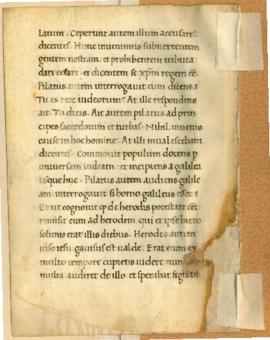 latum. Ceperunt autem illum accusare
dicentes. Hunc invenimus subvertentem
gentem nostram. et prohibentem tributa
dari cesari. et dicentem se xpm regem
Pilatus autem interrogavit eum dicens.
Tu es rex iudeorum? At ille respondens
ait. Tu dicis. Ait autem pilatus ad prin
cipes sacerdotum et turbas. Nihil invenio
cause in hoc homine. At illi invalescebant
dicentes. Commovit populum docens p
universam iudeam. et incipiens a galilea
usque huc. Pilatus autem audiens galile
am. interrogavit si homo galileus esset.
Et ut cognovit qd de herodis potestate
remisit eum ad herodem. qui et ipse hiero
solimis erat illis diebus. Herodes autem
viso iesu. gavisus est valde. Erat enim ex
multo tempore cupiens videre eum
multa audiret de illo. et sperabat signum